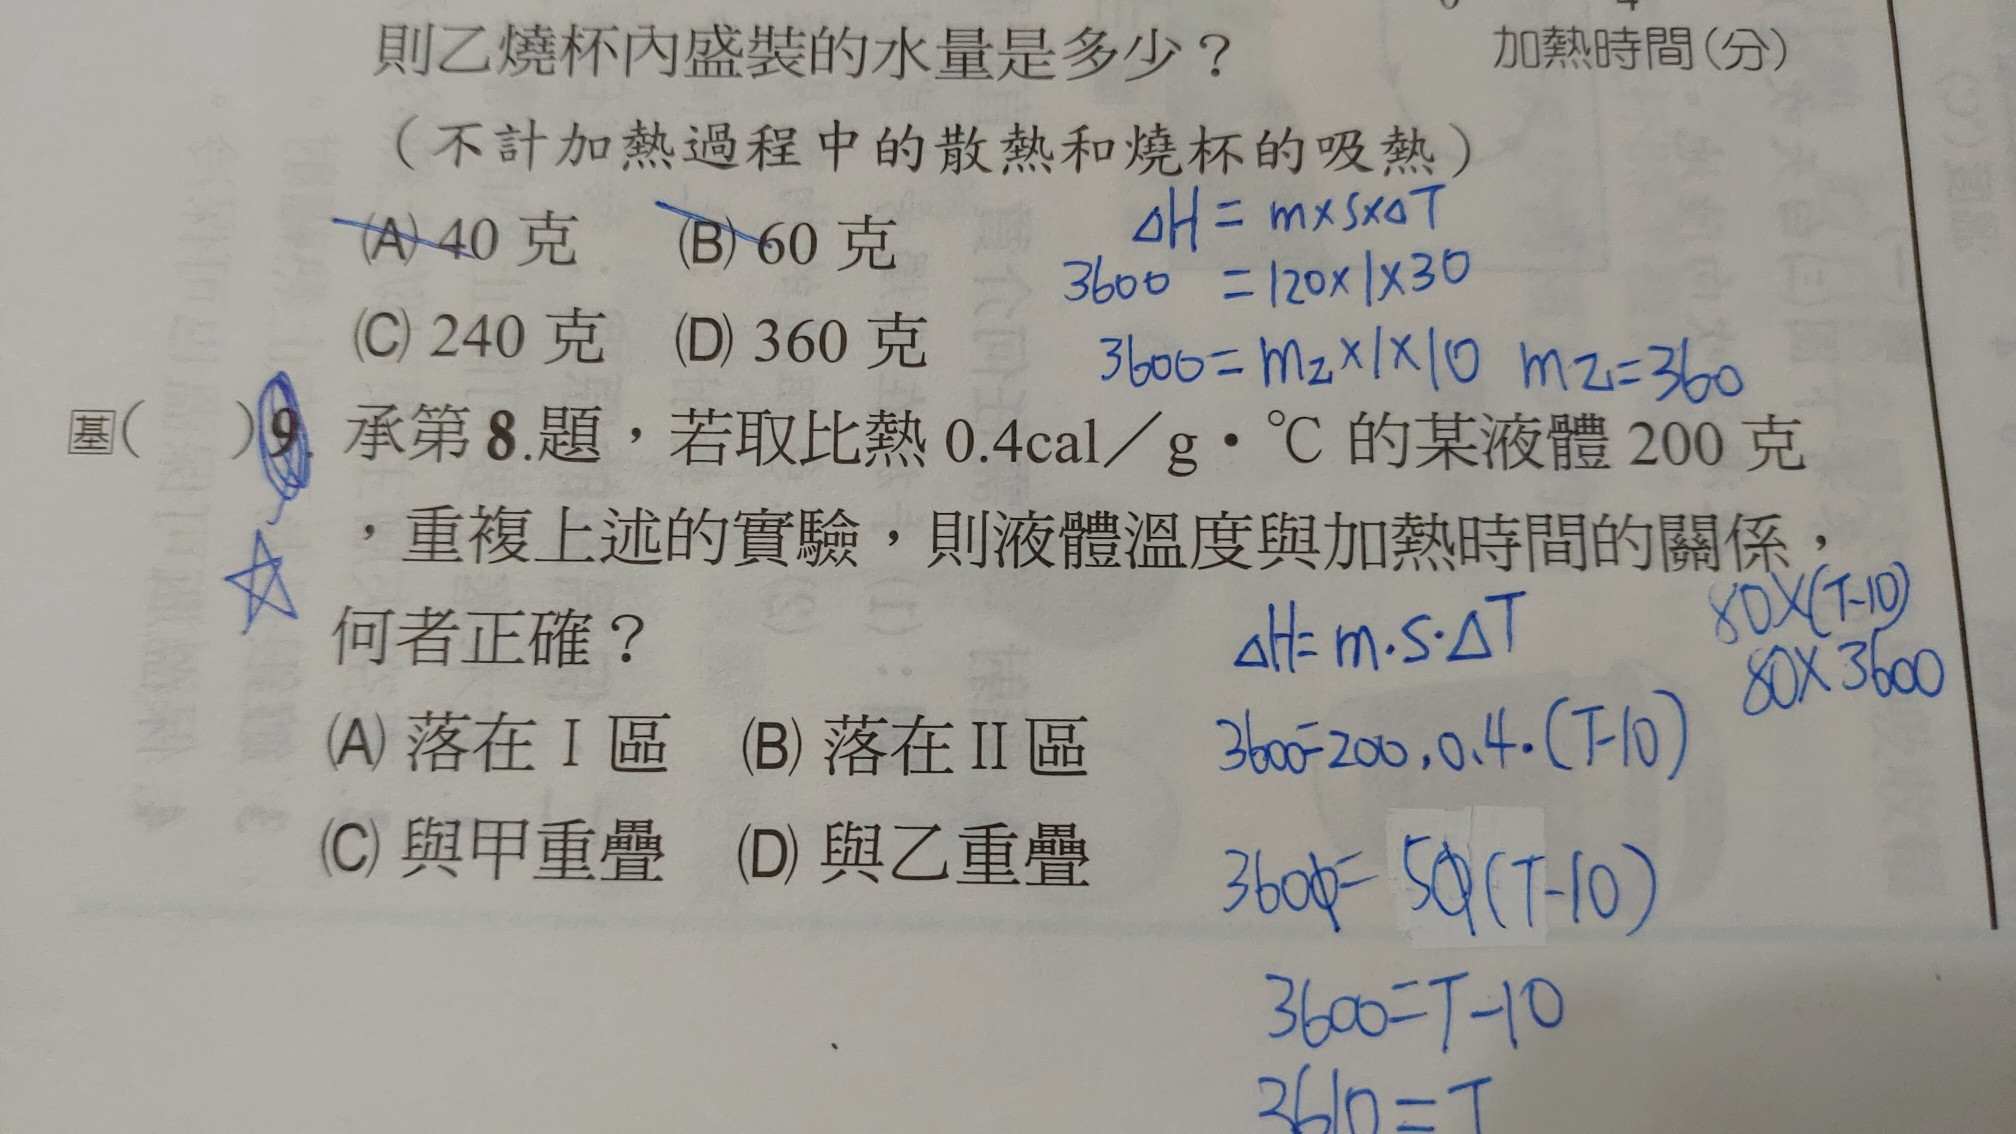 則乙燒杯內盛裝的水量是多少？
加熱時間(分)
(不計加熱過程中的散熱和燒杯的吸熱)
(A) 40 克 (B) 60 克
(C) 240 克 (D) 360 克
ΔH = m×S×ΔT
3600 = 120×1×30
3600 = m乙×1×10 m乙=360
基( )9. 承第8.題，若取比熱 0.4cal／g・℃ 的某液體 200 克
，重複上述的實驗，則液體溫度與加熱時間的關係，
何者正確？
(A) 落在 I 區 (B) 落在 II 區
(C) 與甲重疊 (D) 與乙重疊
ΔH= m・S・ΔT
80×(T-10)
80×3600
3600=200.0.4.(T-10)
3600= 50(T-10)
3600=T-10
3610=T